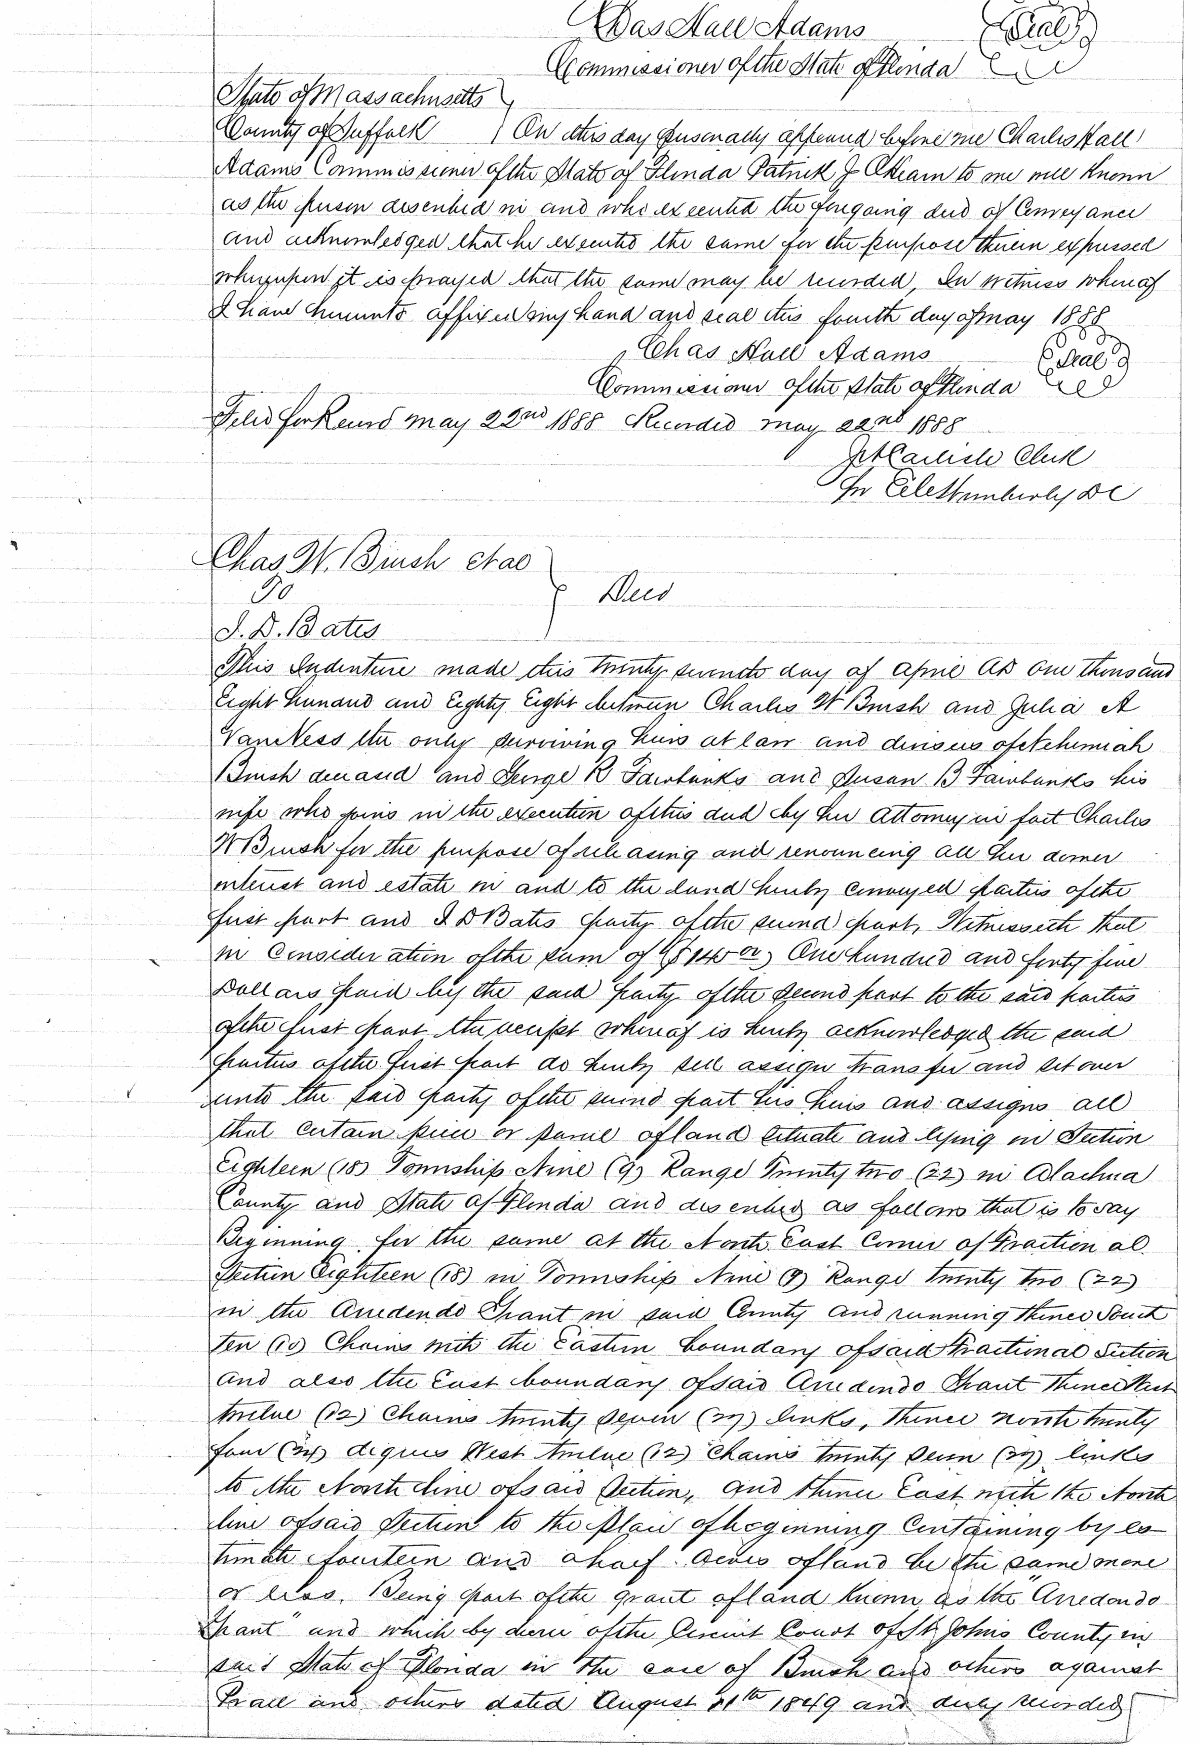 Chas Hall Adams (Seal)
Commissioner of the State of Florida
State of Massachusetts }
County of Suffolk } On this day personally appeared before me Charles Hall
Adams Commissioner of the State of Florida Patrick J OKeam to me well known
as the person described in and who executed the foregoing deed of Conveyance
and acknowledged that he executed the same for the purpose therein expressed
whereupon it is prayed that the same may be recorded, In witness whereof
I have hereunto affixed my hand and seal this fourth day of may 1888
Chas Hall Adams (Seal)
Commissioner of the State of Florida
Filed for Record may 22nd 1888 Recorded may 22nd 1888
Carlisle Clerk
DC
Chas W. Brush et al
To } Deed
I. D. Bates
This Indenture made this twenty seventh day of april AD One thousand
Eight hundred and Eighty Eight between Charles W Brush and Julia A
Van Ness the only surviving heirs at law and devisees of Nehemiah
Brush deceased and George R Fairbanks and Susan B Fairbanks his
wife who joins in the execution of this deed by her Attorney in fact Charles
W Brush for the purpose of releasing and renouncing all her dower
interest and estate in and to the land hereby conveyed parties of the
first part and I D Bates party of the second part, Witnesseth that
in Consideration of the sum of ($145 00) One hundred and forty five
Dollars paid by the said party of the second part to the said parties
of the first part the receipt whereof is hereby acknowledged the said
parties of the first part do hereby sell assign transfer and set over
unto the said party of the second part his heirs and assigns all
that certain piece or parcel of land situate and lying in Section
Eighteen (18) Township Nine (9) Range Twenty two (22) in Alachua
County and State of Florida and described as follows that is to say
Beginning for the same at the North East Corner of Fraction al
Section Eighteen (18) in Township Nine (9) Range twenty two (22)
in the Arredondo Grant in said County and running thence South
ten (10) Chains with the Eastern boundary of said Fractional Section
and also the East boundary of said Arredondo Grant Thence West
twelve (12) Chains twenty seven (27) links, thence north twenty
four (24) degrees West twelve (12) Chains twenty seven (27) links
to the North line of said Section, and thence East with the North
line of said Section to the place of beginning Containing by es-
timate fourteen and a half acres of land be the same more
or less. Being part of the grant of land known as the "Arredondo
Grant" and which by decree of the Circuit Court of St Johns County in
said State of Florida in the case of Brush and others against
and others dated August 11th 1849 and duly recorded